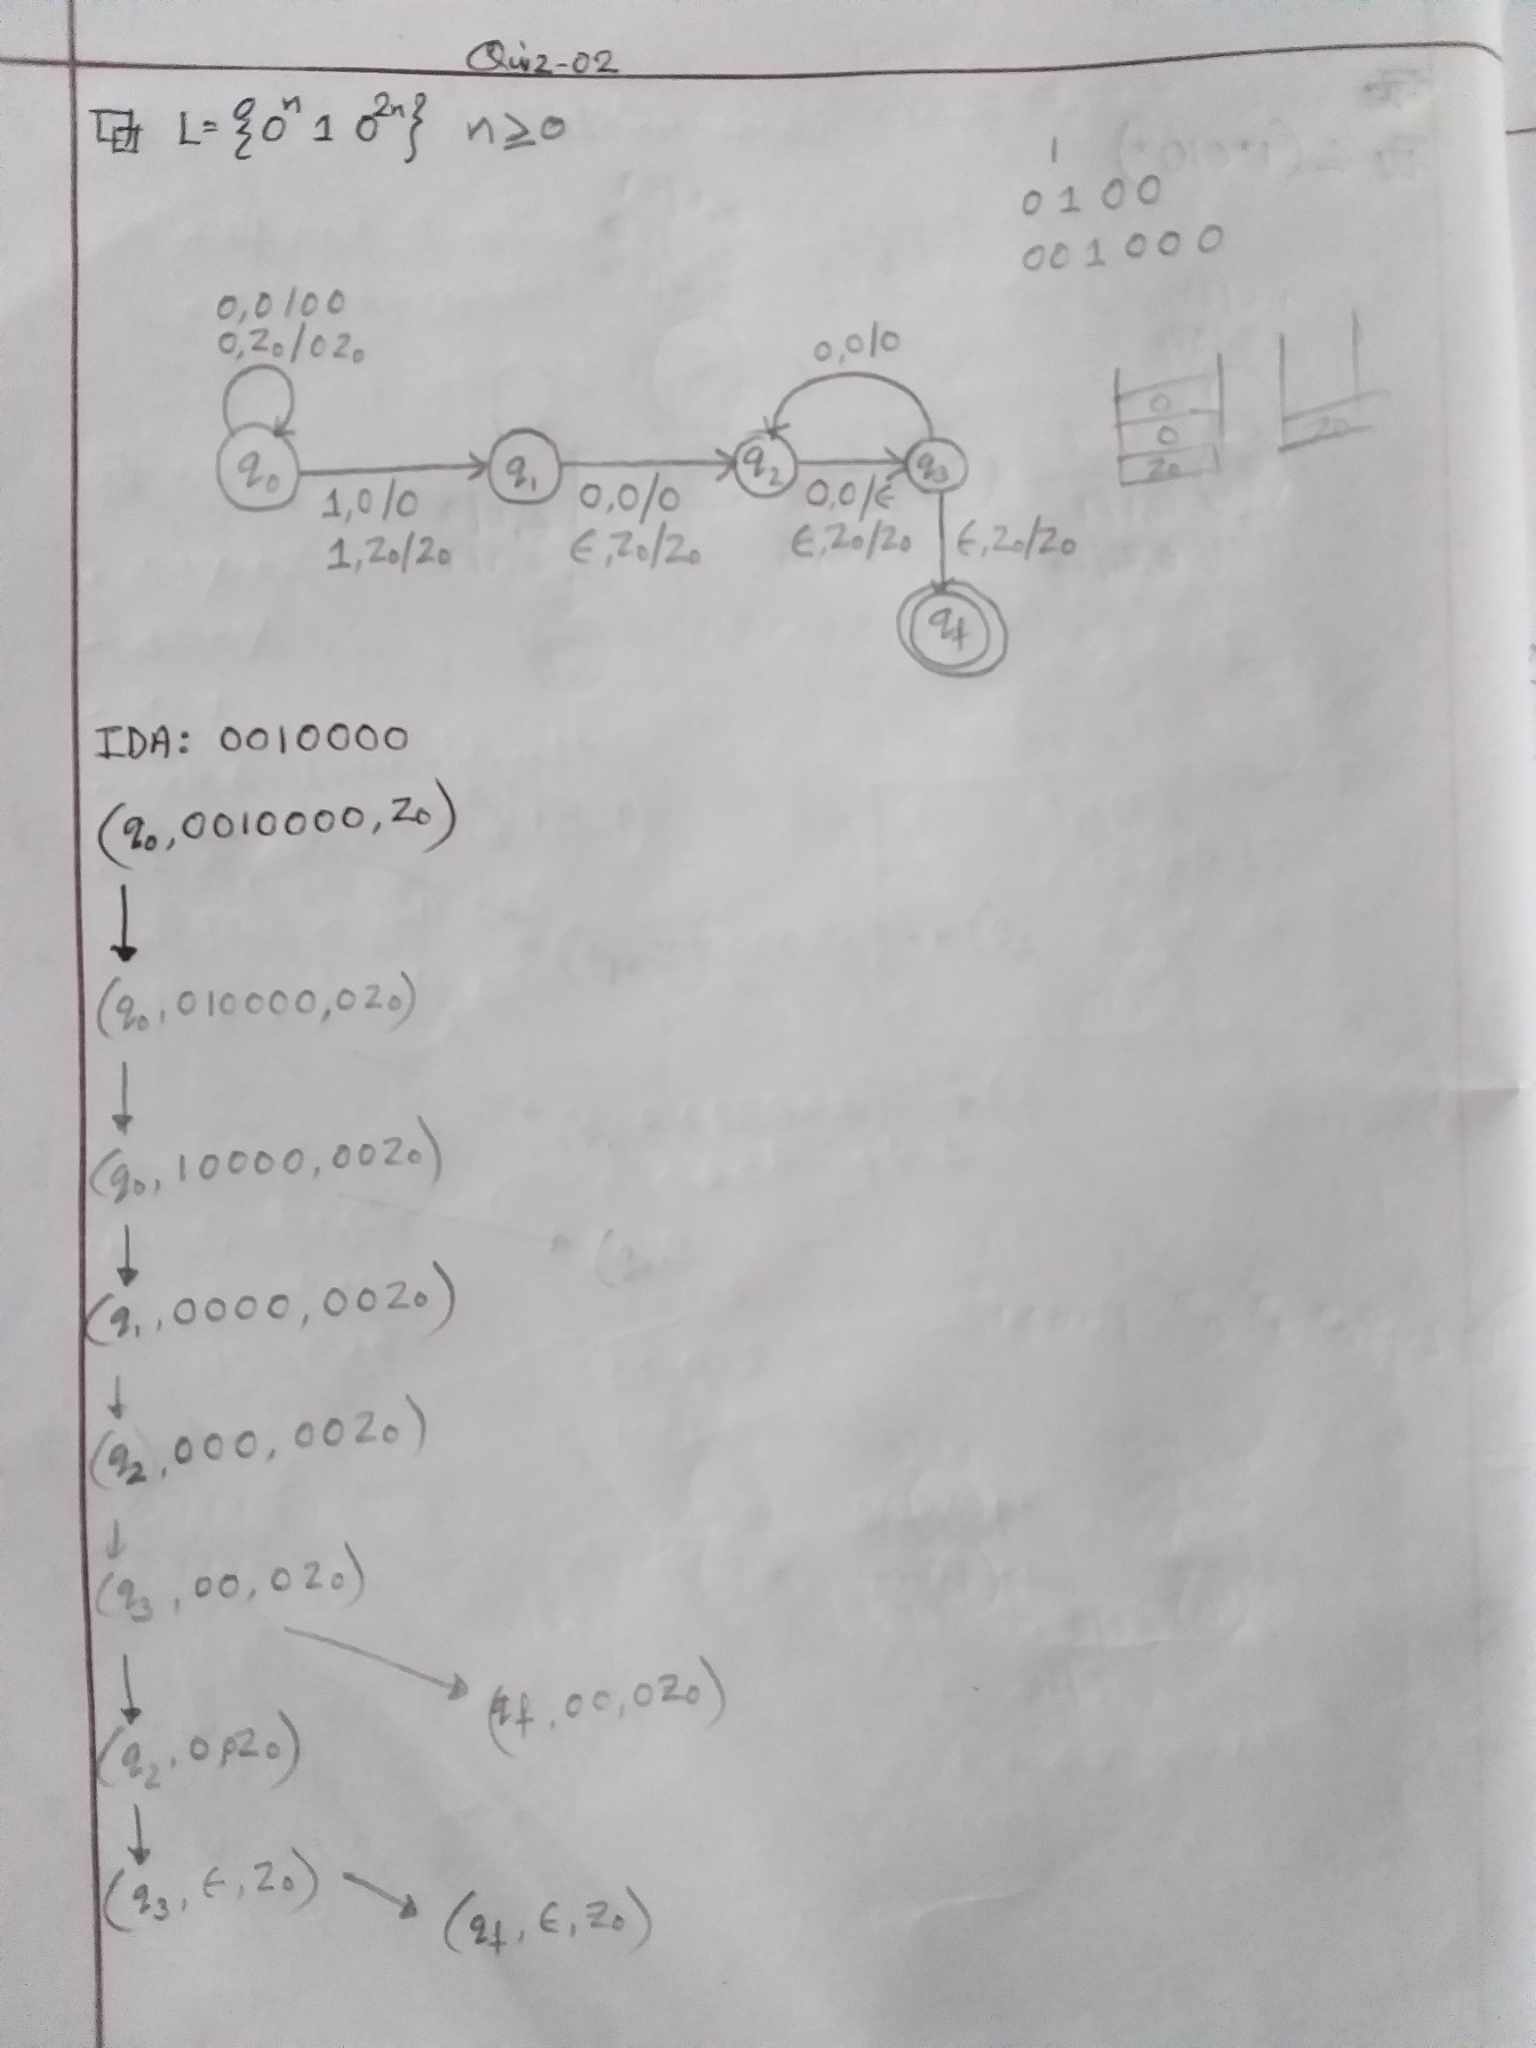 Quiz-02
L= {0ⁿ 1 0²ⁿ} n≥0
1
0 1 0 0
0 0 1 0 0 0
0,0/00
0,Z₀/0Z₀
0,0/0
q₀
q₁
q₂
q₃
1,0/0
1,Z₀/Z₀
0,0/0
ϵ,Z₀/Z₀
0,0/ϵ
ϵ,Z₀/Z₀
ϵ,Z₀/Z₀
qf
0
0
Z₀
Z₀
IDA: 0010000
(q₀,0010000,Z₀)
↓
(q₀,010000,0Z₀)
↓
(q₀,10000,00Z₀)
↓
(q₁,0000,00Z₀)
↓
(q₂,000,00Z₀)
↓
(q₃,00,0Z₀)
↓ → (qf,00,0Z₀)
(q₂,0,0Z₀)
↓
(q₃,ϵ,Z₀) → (qf,ϵ,Z₀)